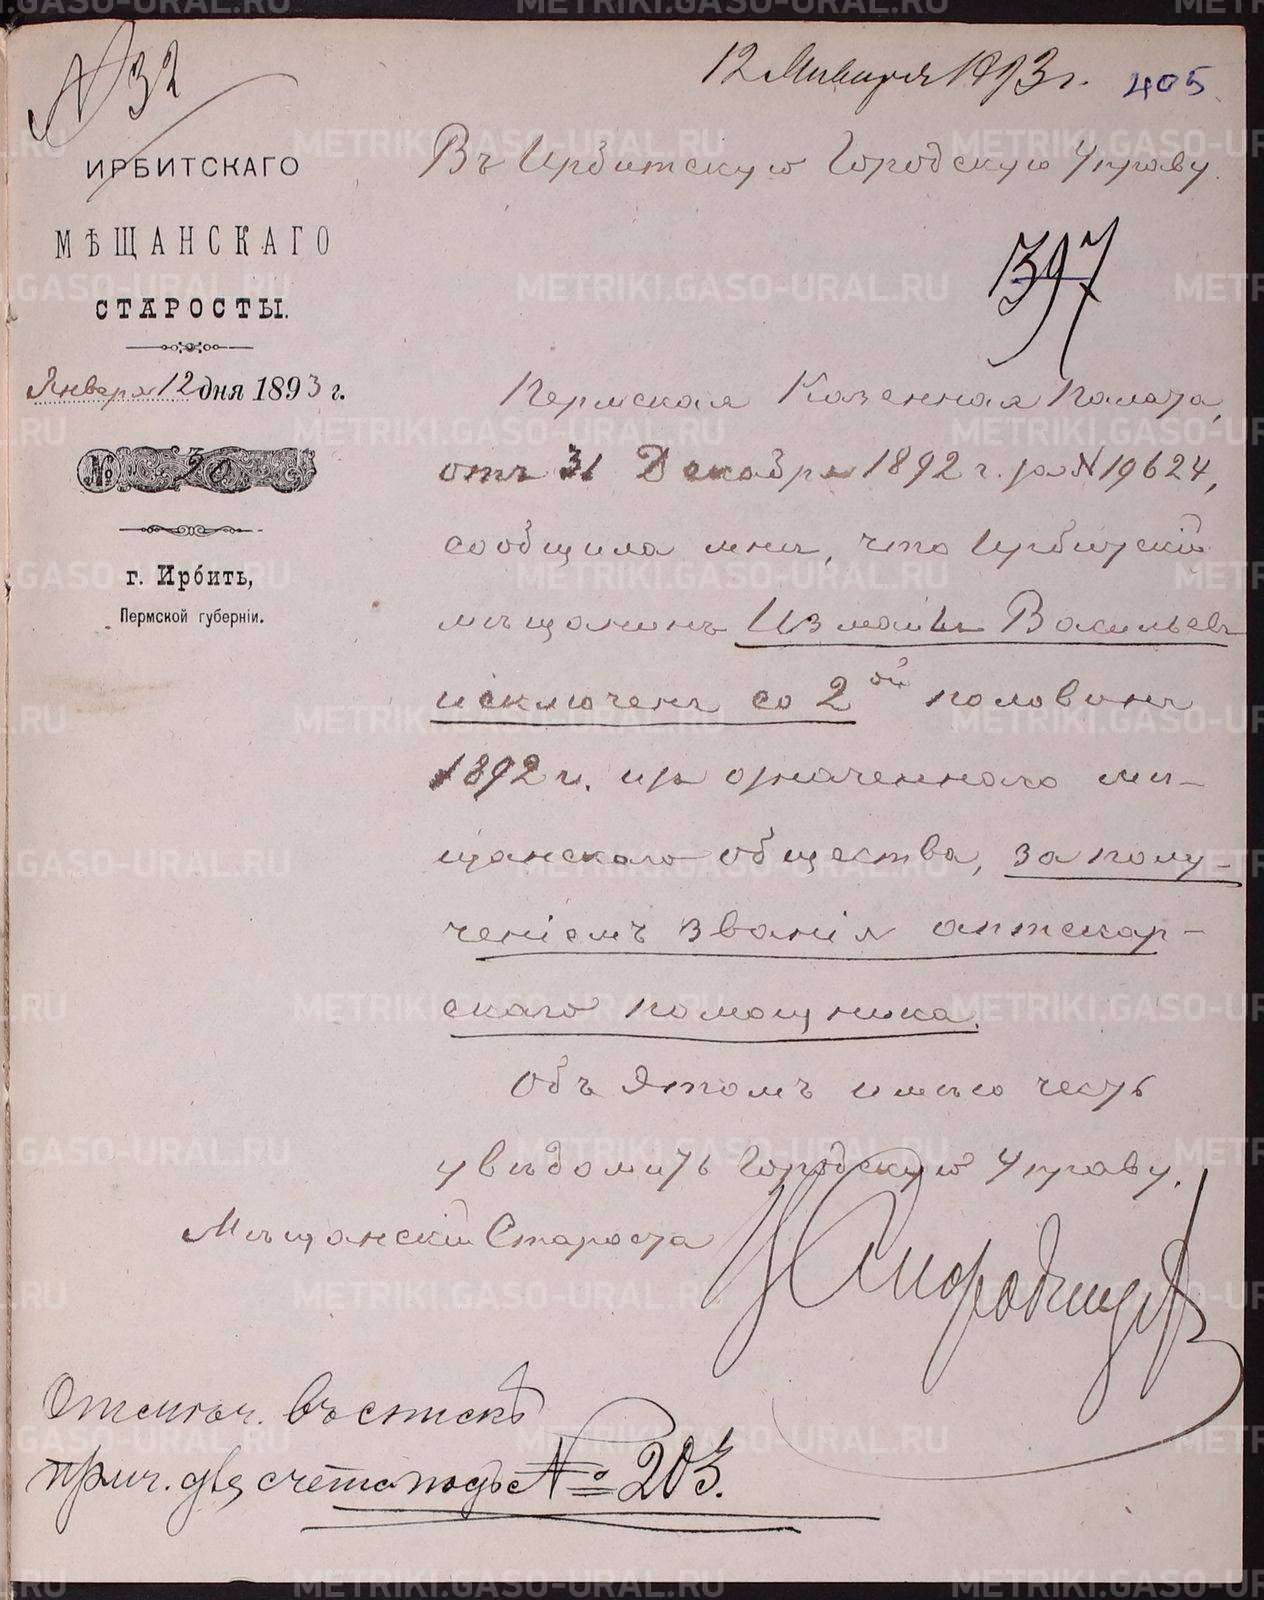 № 32
12 Января 1893 г.
405
ИРБИТСКАГО
МѢЩАНСКАГО
СТАРОСТЫ.
Января 12 дня 1893 г.
№ 20
г. Ирбить,
Пермской губерніи.
Въ Ирбитскую Городскую Управу.
397
Пермская Казенная Палата,
отъ 31 Декабря 1892 г. за № 19624,
сообщила мнѣ, что Ирбитскій
мѣщанинъ Измаилъ Васильевъ
исключенъ со 2ой половины
1892 г. изъ означеннаго мѣ-
щанскаго общества, за полу-
ченіемъ званія аптекар-
скаго помощника.
Объ этомъ имѣю честь
увѣдомить Городскую Управу.
Мѣщанскій Староста
Отмѣч. въ спискѣ
прич. счета подъ № 203.
METRIKI.GASO-URAL.RU